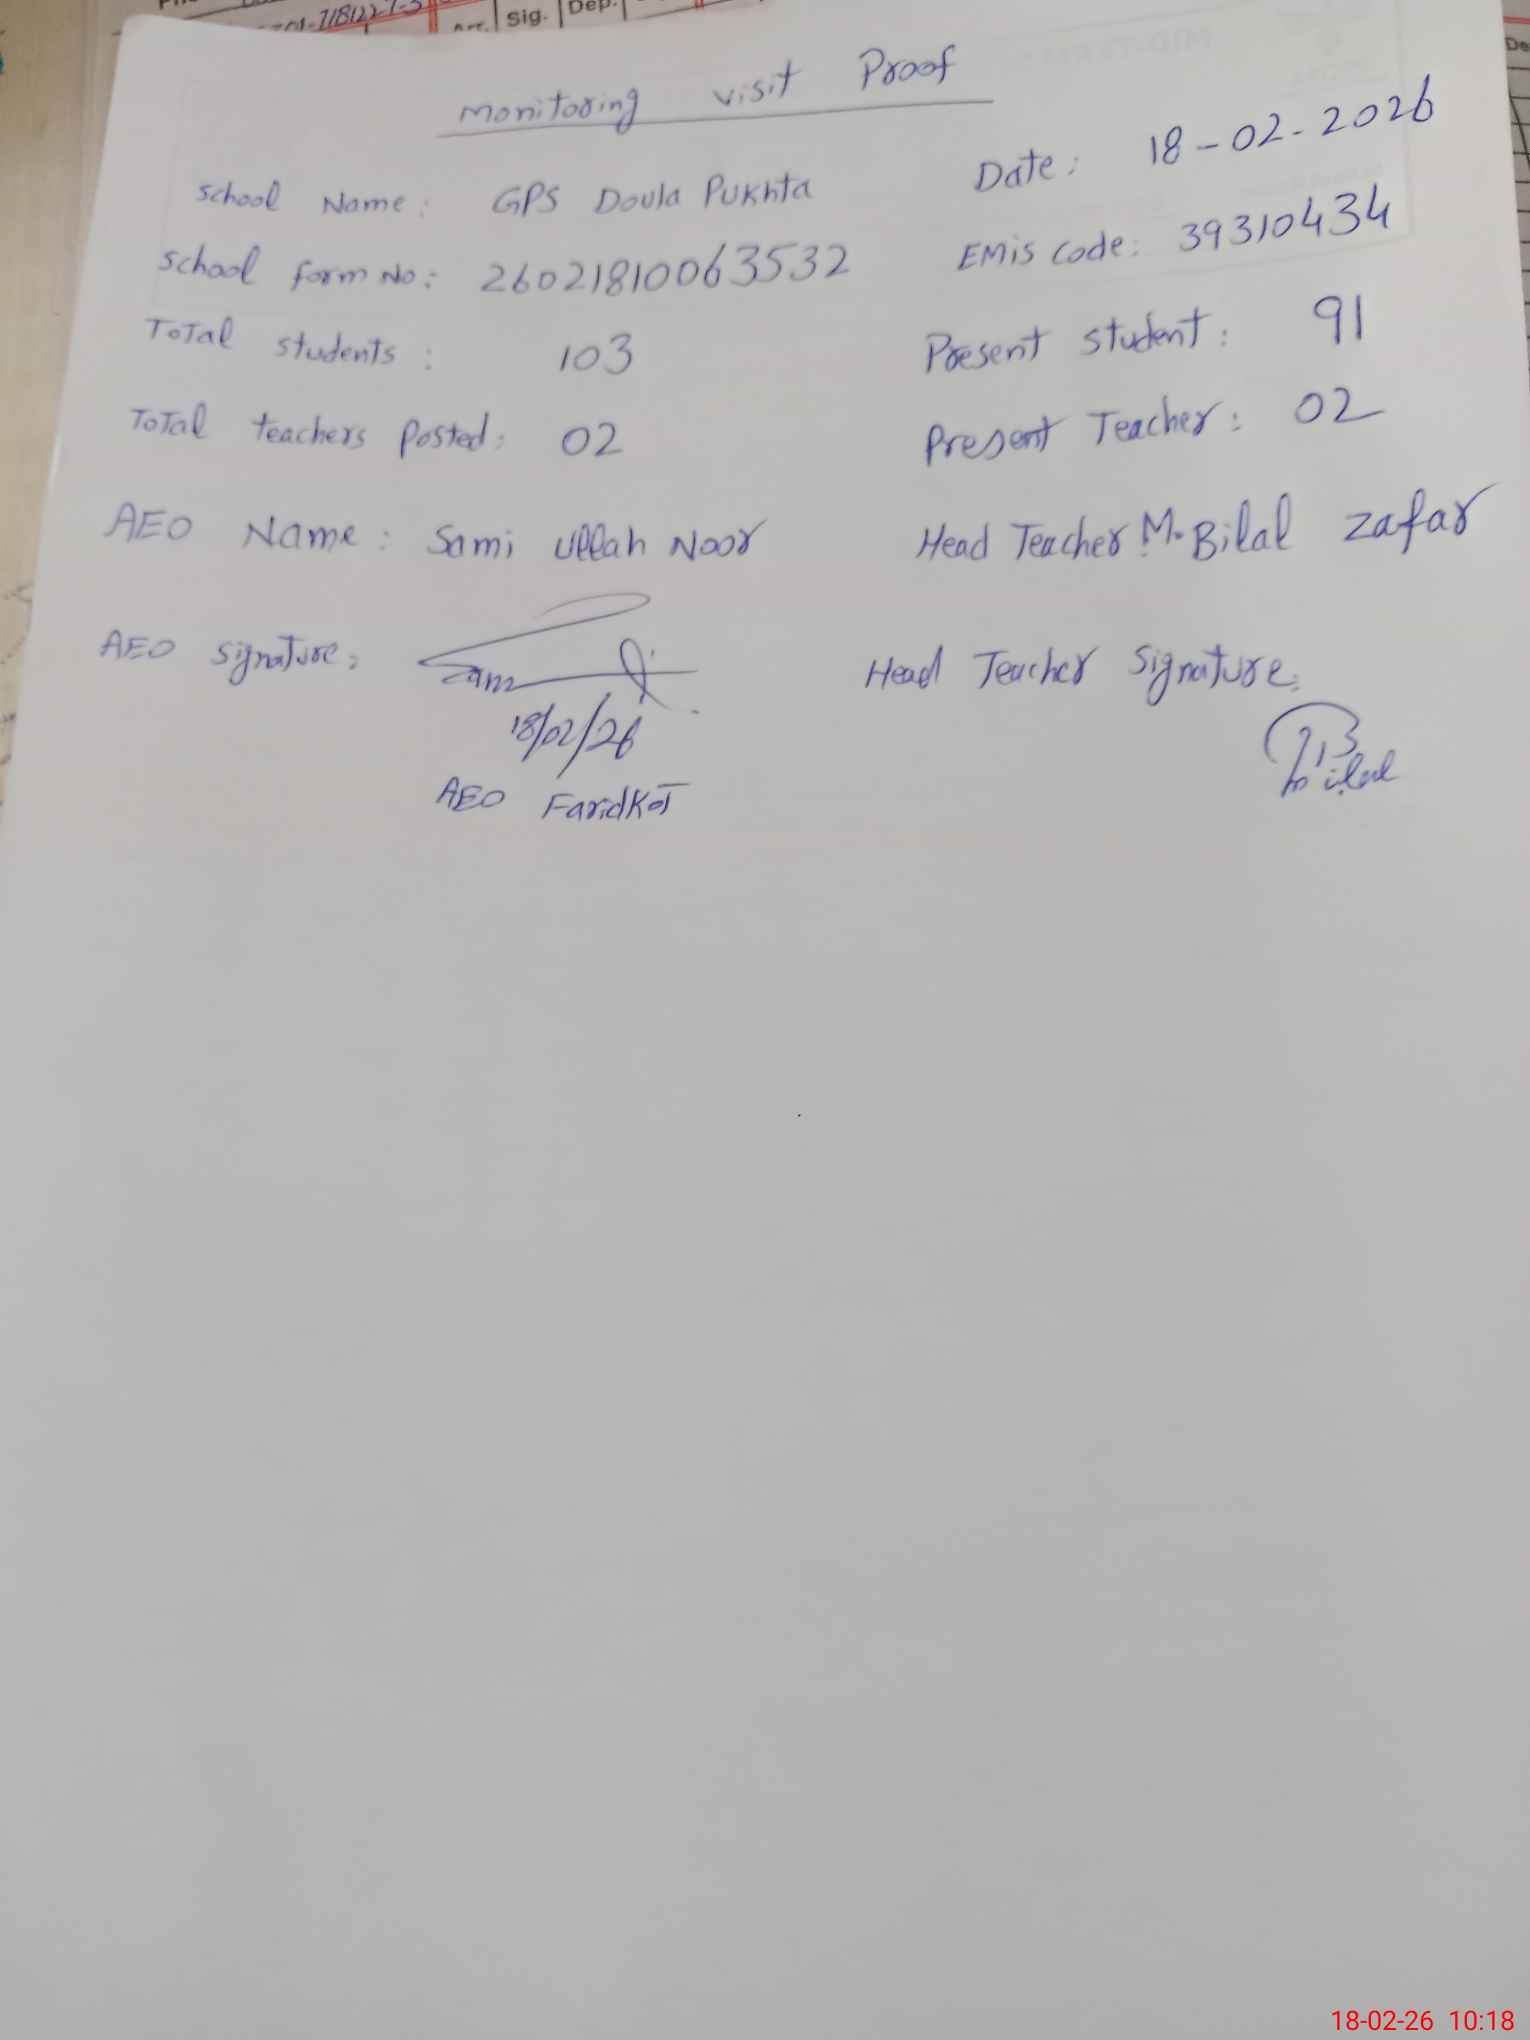 Sig. Dep.
Monitoring visit Proof
Date: 18-02-2026
School Name: GPS Doula Pukhta
EMis code: 39310434
School form No: 26021810063532
Total students: 103
Present student: 91
Total teachers Posted: 02
Present Teacher: 02
AEO Name: Sami Ullah Noor
Head Teacher: M. Bilal Zafar
AEO Signature:
Head Teacher Signature:
18/02/26
Bilal
AEO FaridKot
18-02-26 10:18